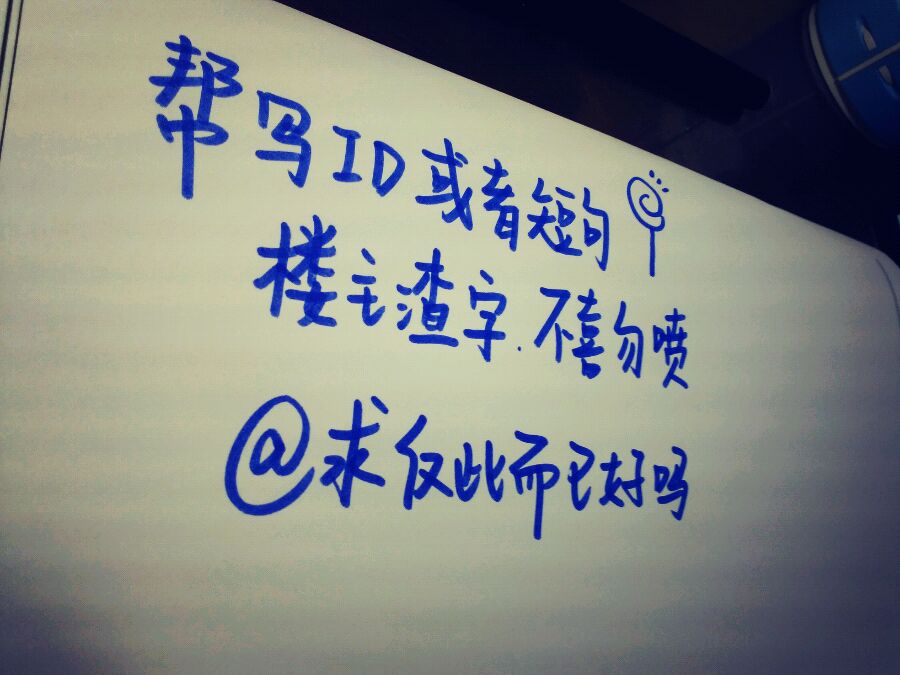 帮写ID或者短句
楼主渣字.不喜勿喷
@求仅此而已好吗